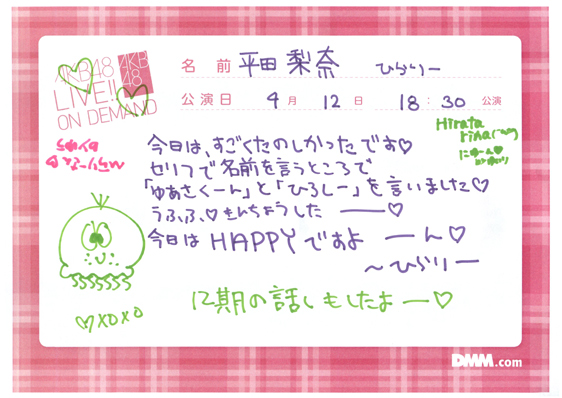 AKB48
LIVE!!
ON DEMAND
AKB
48
名 前 平田 梨奈 ひらりー
公演日 9月 12日 18:30 公演
Hirata
rina
今日は、すごくたのしかったです♡
セリフで名前を言うところで
「ゆあさくーん」と「ひろしー」を言いました♡
うふふ、♡きんちょうした ー♡
今日は HAPPYですよ ーん♡
〜ひらりー
♡xoxo
12期の話しもしたよー♡
DMM.com